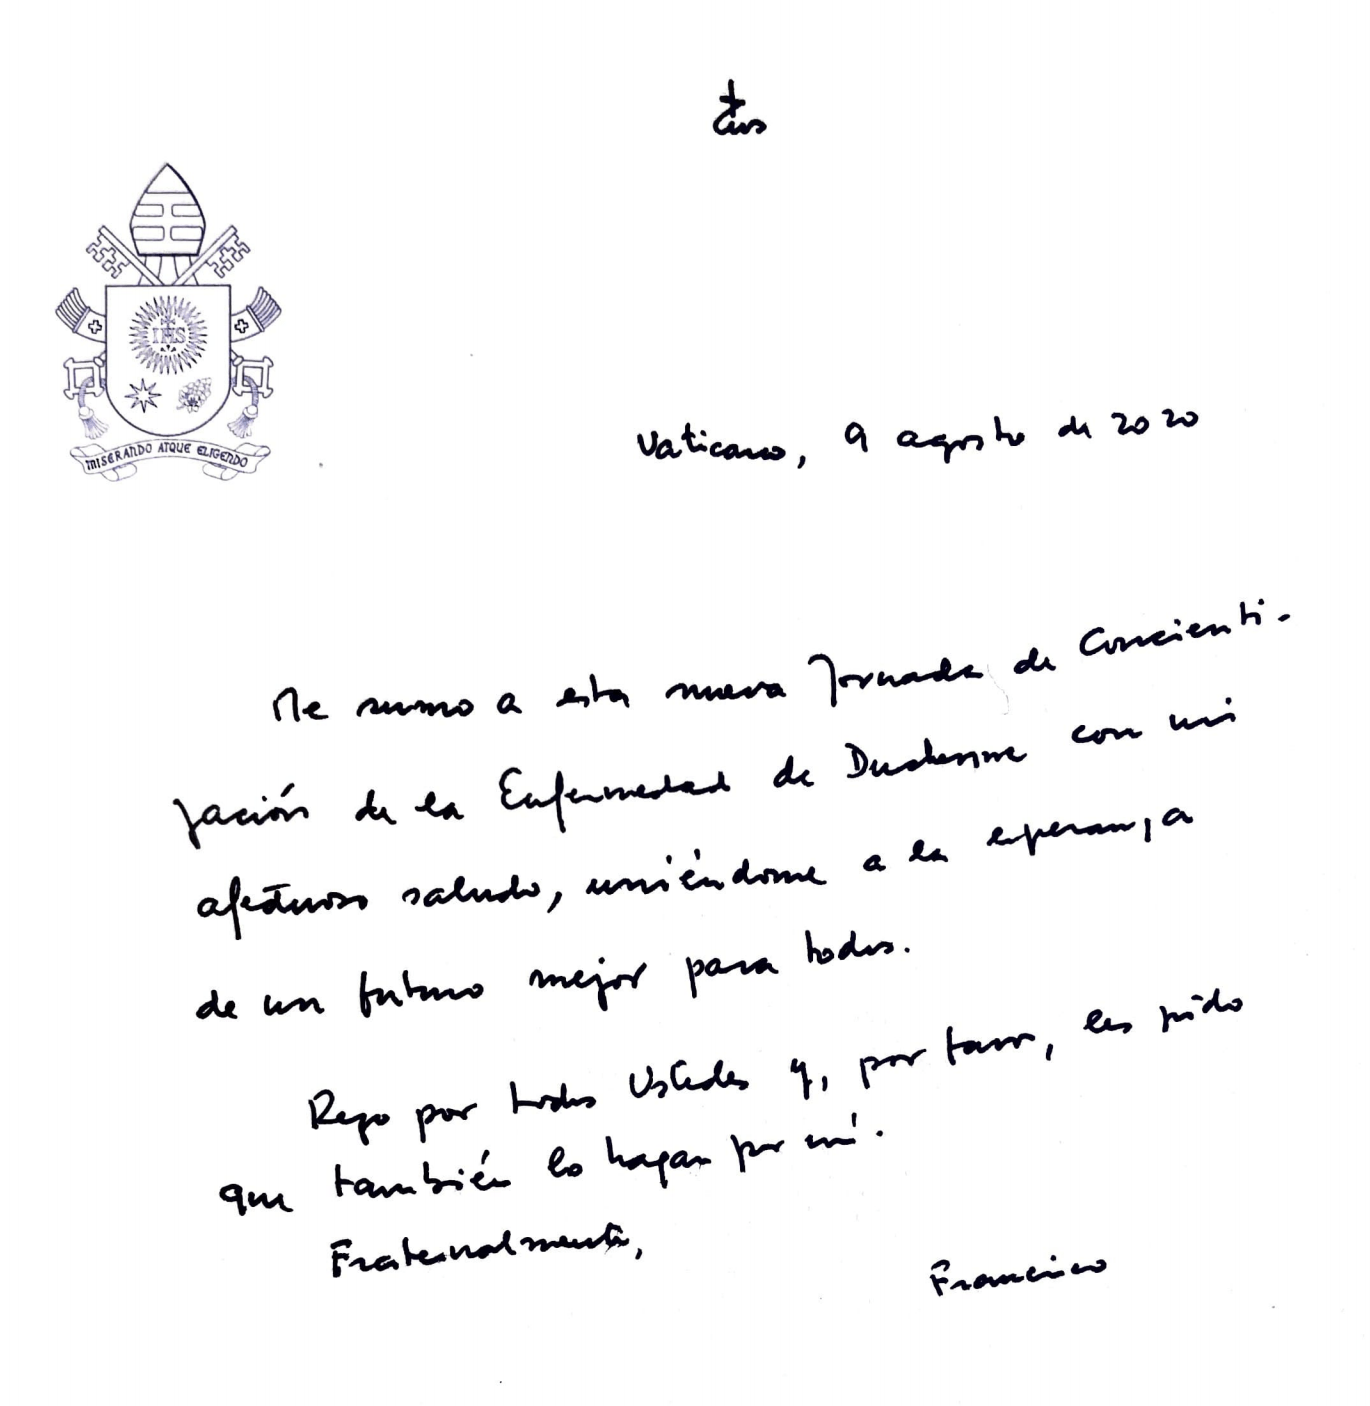 IHS
MISERANDO ATQUE ELIGENDO
Vaticano, 9 agosto de 2020
Me sumo a esta nueva Jornada de Concienti-
zación de la Enfermedad de Duchenne con mi
afectuoso saludo, uniéndome a la esperanza
de un futuro mejor para todos.
Rezo por todos Ustedes y, por favor, les pido
que también lo hagan por mí.
Fraternalmente,
Francisco